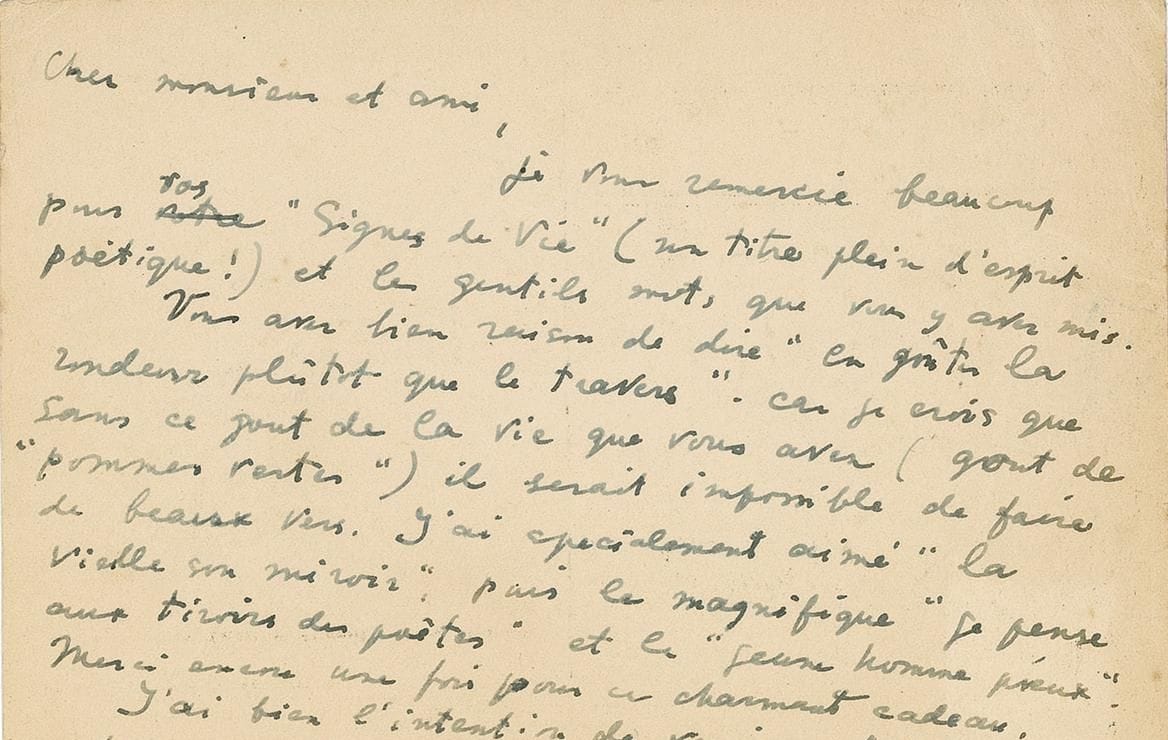 Cher monsieur et ami,
je vous remercie beaucoup
vos
pour votre "Signes de Vie" (un titre plein d'esprit
poëtique!) et les gentils mots que vous y avez mis.
Vous avez bien raison de dire "en goûter la
rondeur plûtot que le travers". car je crois que
sans ce gout de la vie que vous avez (gout de
"pommes vertes") il serait impossible de faire
de beaux vers. J'ai specialement aimé "la
vieille son miroir", puis le magnifique "je pense
aux tiroirs des poëtes" et le "jeune homme pieux".
Merci encore une fois pour ce charmant cadeau.
J'ai bien l'intention de